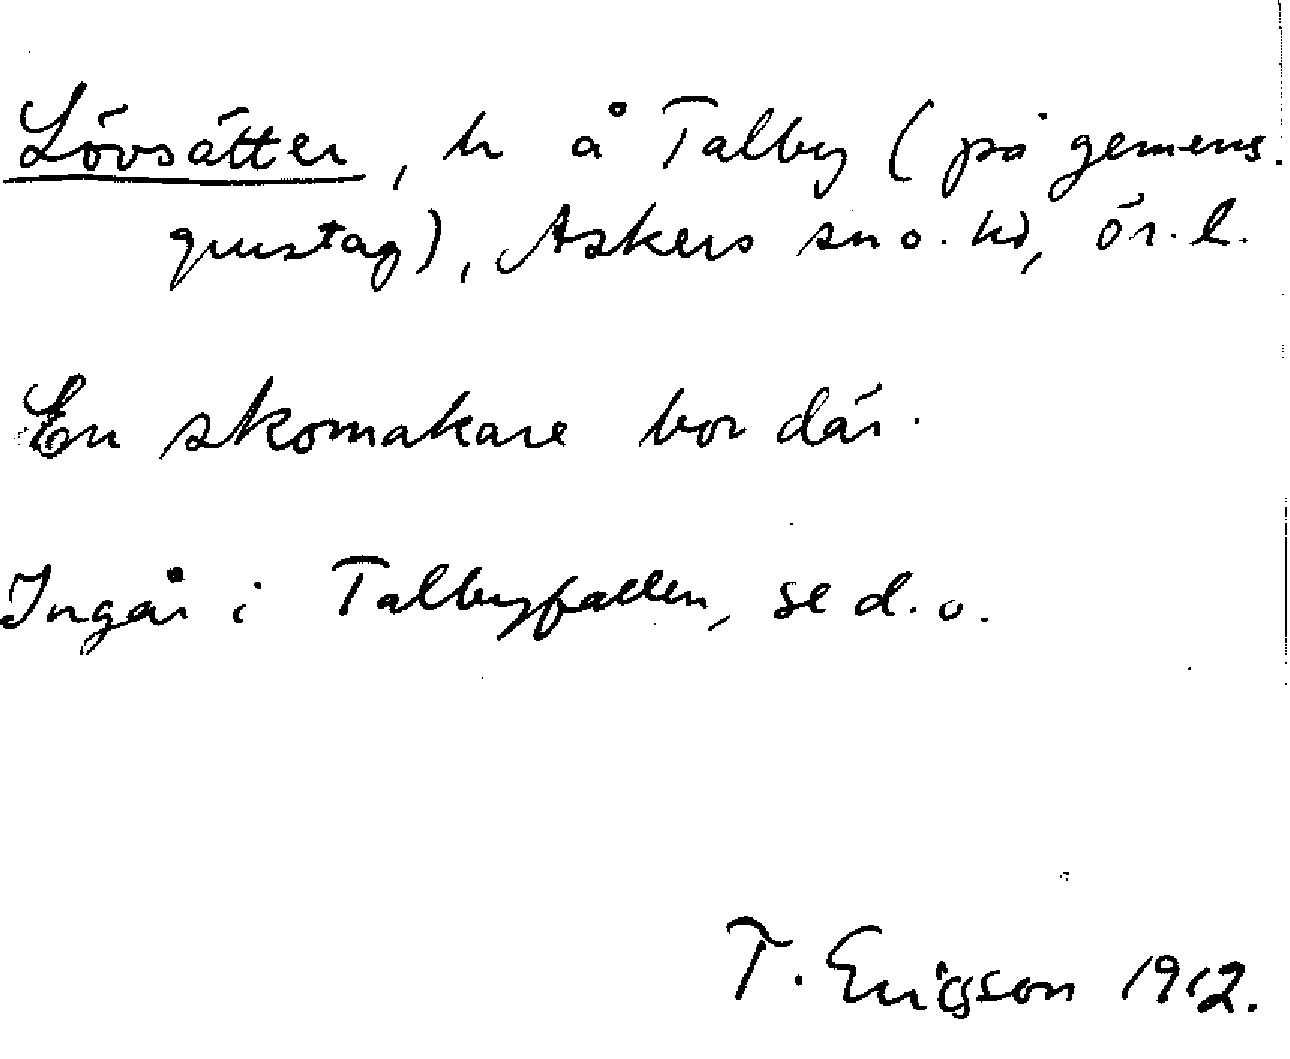 Lövsätter, h å Talby (på gemens.
grustag), Askers sn o. hd, ör. l.
En skomakare bor där.
Ingår i Talbyfallen, se d. o.
T. Ericsson 1912.